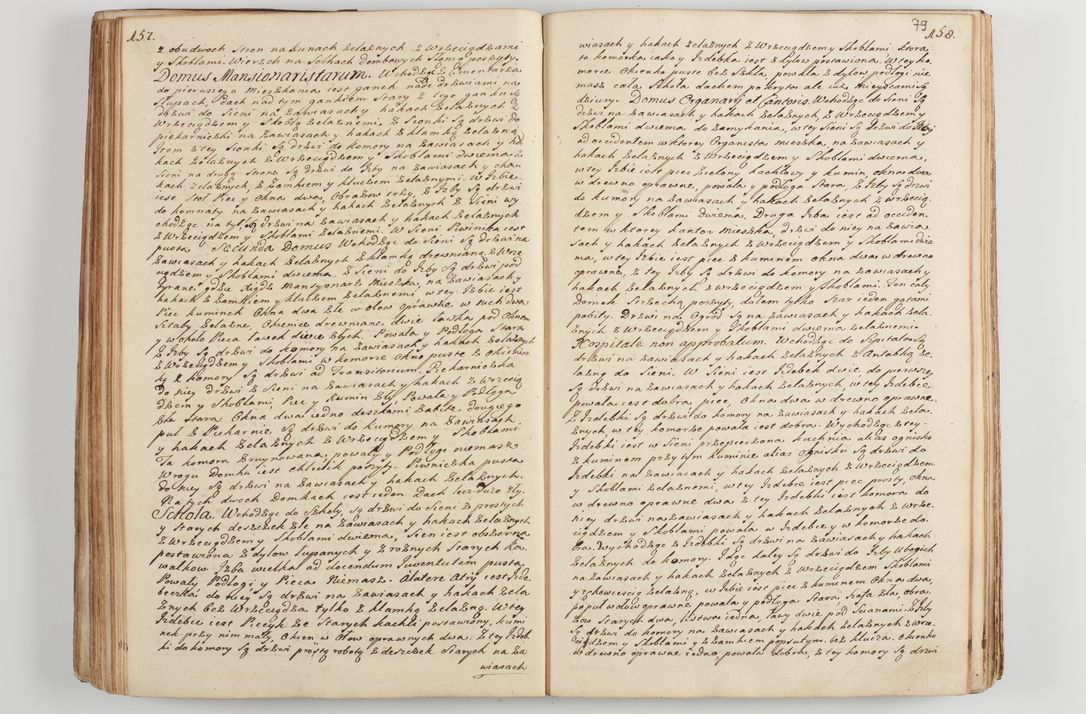 157.
z obudwoch Stron na Kunach żelaznych z Wrzeciądzami
y Skoblami. Wierzch na Sochach dembowych Słomą poszyty.
Domus Mansionaristarum. Wchodząc z Cmentarza
do pierwszego Mieszkania iest ganek nade drzwiami na
Słupach, Dach nad tym gankiem Stary z tego ganku Są
drzwi do Sieni na zawiasach y hakach żelaznych z
Wrzeciądzem y Skoblą żelaznemi. z Sionki Są drzwi do
piekarnieczki na zawiasach y hakach z klamką żelazną
Item z tey Sionki Są drzwi do komory na zawiasach y ha
kach żelaznych z Wrzeciądzem y Skoblami dwiema z
Sieni na drugą Stronę Są drzwi do Izby na zawiasach y ha
kach żelaznych, z Zamkiem y kluczem żelaznymi. W Izbie
iest Stoł Piec y Okna dwa, Obrazow trzy, z Izby Są drzwi
do komnaty na zawiasach y hakach żelaznych z Sieni wy
chodząc na tył Są drzwi na zawiasach y hakach żelaznych
z Wrzeciądzem y Skoblami żelaznemi. W Sieni Piwnica iest
pusta Secunda Domus Wchodząc do Sieni Są drzwi na
zawiasach y hakach żelaznych z klamką drewnianą z Wrze
ciądzem y Skoblami dwiema. z Sieni do Izby Są drzwi pod
hakach z Zamkiem y kluczem żelaznemi w tey Izbie iest
Piec kuminek Okna dwa złe w ołow oprawne w nich dwa
Sztaby żelazne, Okienice drewniane, dwie ławka pod Oknem
z Izby Są drzwi do komory na zawiasach y hakach żelaznych
z Wrzeciądzem y Skoblami w komorze Okno puste z Okienicz
ką z komory Są drzwi ad Transitorium. Piekarnieczka
do niey drzwi z Sieni na zawiasach y hakach z Wrzecią
dzem y Skoblami, Piec y Kumin zły Powała y Podłoga
zła Stara Okna dwa iedno deszkami zabite, drugiego
puł z Piekarnie Są drzwi do kumory na zawiasach
y hakach żelaznych z Wrzeciądzem y Skoblami
Ta komora zruynowana, powały y Podłogi niemasz
Wrogu Domku iest chlewik poszyty. Piwniczka pusta
do niey Są drzwi na zawiasach y hakach żelaznych.
Na tych dwoch Domkach iest ieden Dach lecz dużo zły.
Szkoła. Wchodząc do Szkoły Są drzwi do Sieni z prostych
y Starych deszczek złe na zawiasach y hakach żelaznych
z Wrzeciądzem y Skoblami dwiema, Sien iest obszerna
postawiona z dylow łupanych y z rożnych Starych ka
wałkow Izba wielka ad docendum Iuventutem pusta
Powały Podłogi y Pieca Niemasz. A latere Atrij iest Izde
beczka do niey Są drzwi na zawiasach y hakach żela
znych bez Wrzeciądza tylko z klamką żelazną. W tey
Izdebce iest Piecyk ze Starych kachli postawiony, kumi
nek przy nim mały, Okien w Ołow oprawnych dwa. z tey Izdeb
ki do komory Są drzwi prostą robotą z deszczek Starych na za
wiasach

79
158.
wiasach y hakach żelaznych z Wrzeciądzem y Skoblami która
to komorka iako y Izdebka iest z dylow postawiona. W tey ko
morce Okienko puste bez Szkła, powała z dylow podłogi nie
masz cała Szkoła dachem pokryta ale iuż mieyscami Są
dziury. Domus Organarij et Cantoris. Wchodząc do Sieni Są
drzwi na zawiasach y hakach żelaznych, z Wrzeciądzem y
Skoblami dwiema do zamykania, w tey Sieni Są drzwi do Izby
ad occidentem w ktorey Organista mieszka, na zawiasach y
hakach żelaznych z Wrzeciądzem y Skoblami dwiema,
w tey Izbie iest piec zielony kachlowy y kumin, okna dwa
w drewno oprawne, powała y podłoga Stara, z Izby Są drzwi
do kumory na zawiasach y hakach żelaznych z wrzecią
dzem y Skoblami dwiema. Druga Izba iest ad occiden
tem w ktorey kantor mieszka, drzwi do niey na zawia
sach y hakach żelaznych z Wrzeciądzem y Skoblami dwie
ma, w tey Izbie iest piec z kuminem okna dwa w drewno
oprawne, z tey Izby Są drzwi do komory na zawiasach y
hakach żelaznych z wrzeciądzem y Skoblami. Ten cały
Domek Strzechą poszyty, dołem tylko Szar ieden gątami
pobity. Drzwi na Ogrod Są na zawiasach y hakach żela
znych z Wrzeciądzem y Skoblami dwiema żelaznemi.
Hospitale non approbatum. Wchodząc do Szpitala Są
drzwi na zawiasach y hakach żelaznych z Antabką że
lazną do Sieni. W Sieni iest Izdebek dwie, do pierwszey
Są drzwi na zawiasach y hakach żelaznych w tey Izdebce
powała iest dobra, piec, Okna dwa w drewno oprawne.
z Izdebki Są drzwi do komory na zawiasach y hakach żela
znych, w tey komorze powała iest dobra. Wychodząc z tey
Izdebki iest w Sieni przepierzona kuchnia alias ognisko
z kuminem przy tym kuminie alias Ognisku Są drzwi do
Izdebki na zawiasach y hakach żelaznych z Wrzeciądzem
y Skoblami żelaznemi, w tey Izdebce iest piec prosty, okna
w drewno oprawne dwa z tey Izdebki iest komora do
niey drzwi na zawiasach y hakach żelaznych z Wrze
ciądzem y Skoblami powała w Izdebce y w komorze do
bra. Wychodząc z Izdebki Są drzwi na zawiasach y hakach
żelaznych do komory. Idąc daley Są drzwi do Izby Ubogich
na zawiasach y hakach żelaznych z Wrzeciądzem Skoblami
y rychowiescią żelazną, w Izbie iest piec z kuminem Okna dwa,
popuł w ołow oprawne powała y podłoga Stara, Szafa zła, obra
zow Starych dwa, Listwa iedna, Ławy dwie pod Scianami. z Izby
Są drzwi do komory na zawiasach y hakach żelaznych z Wrze
ciądzem y Skoblami y z Zamkiem popsutym bez klucza. Okienko
w drewno oprawne iedno powała dobra, z tey komory Są drzwi